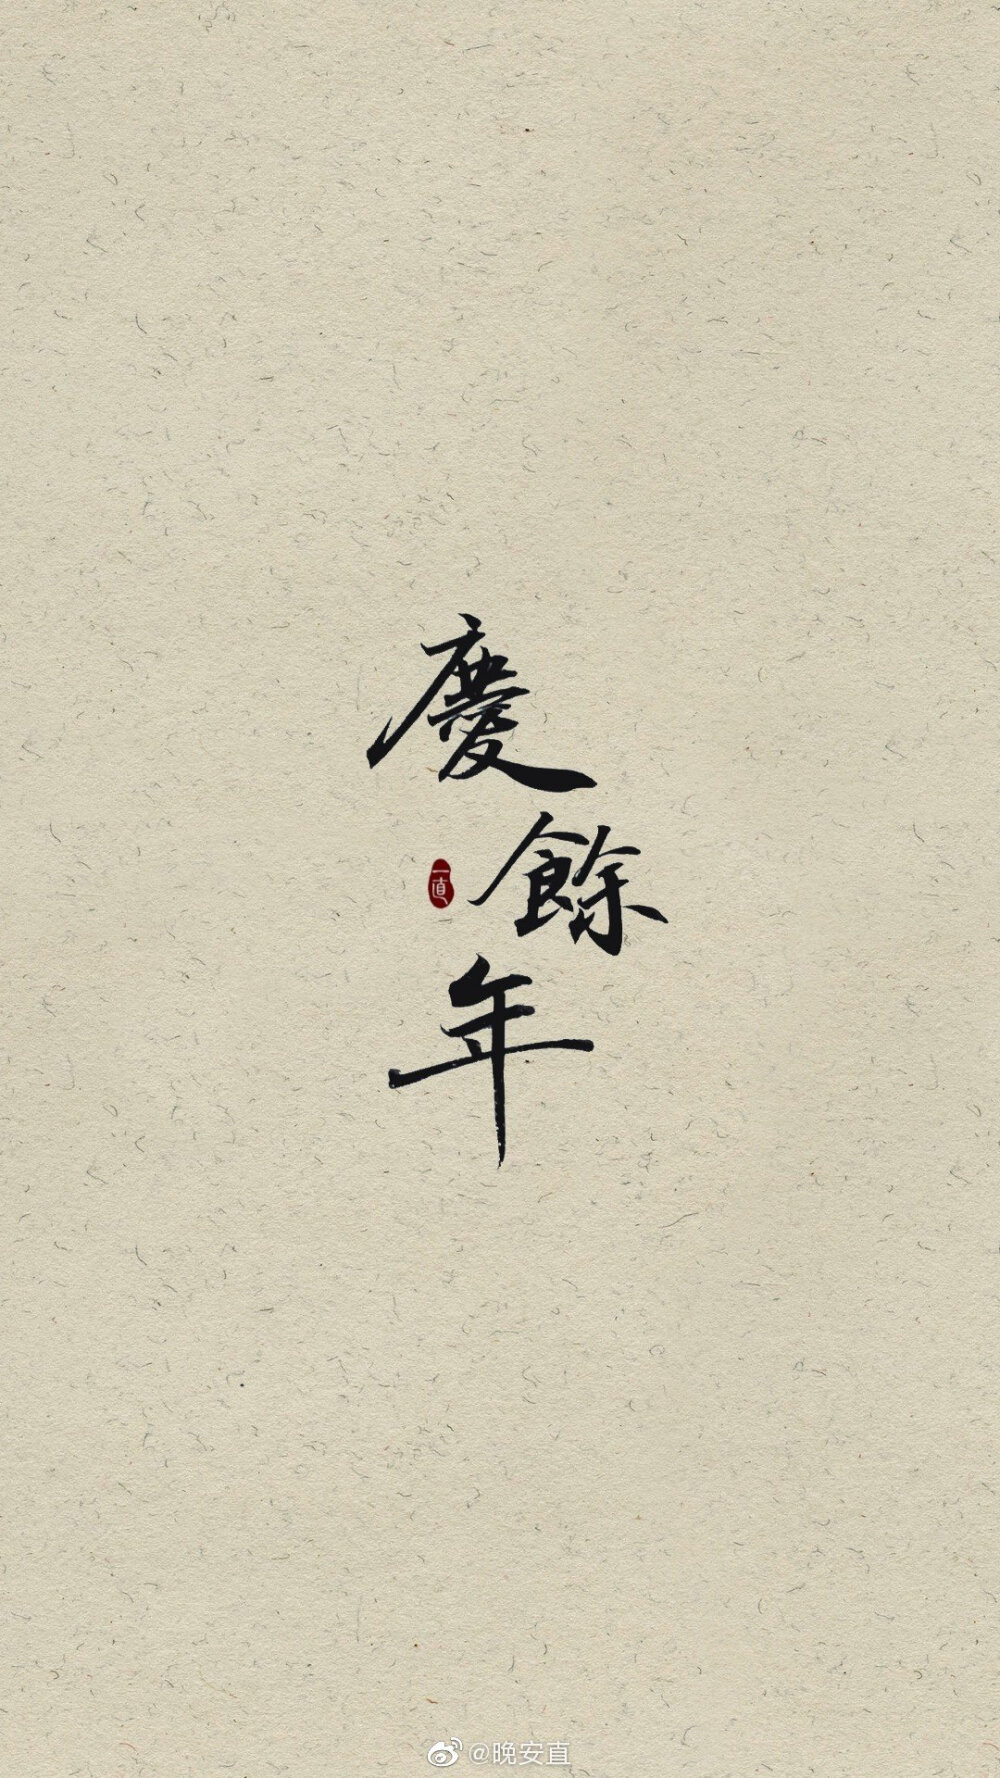 慶
餘
年
一直
@晚安直